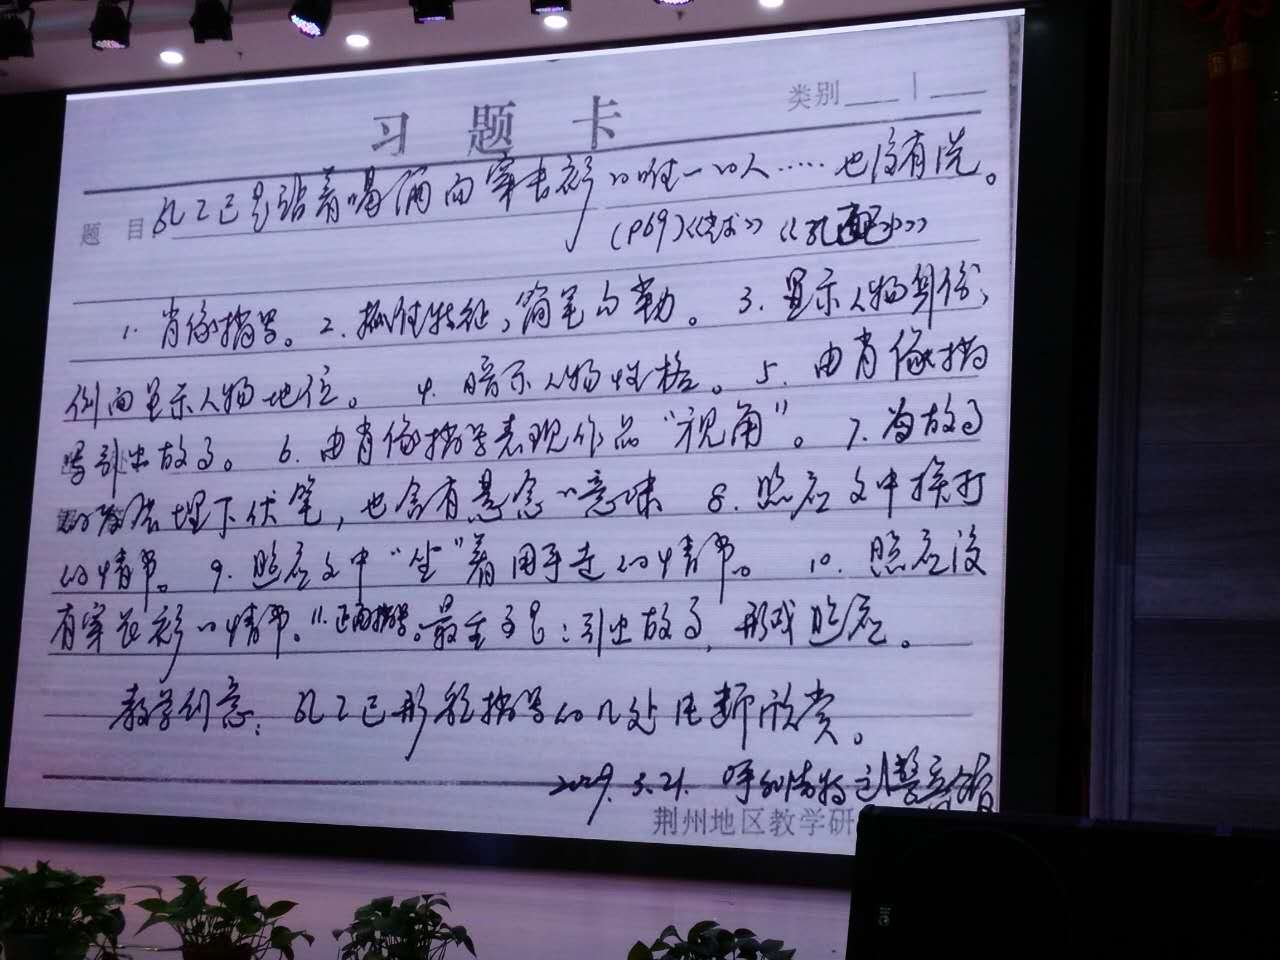 习题卡
类别
题目 孔乙己是站着喝酒而穿长衫的唯一的人……也没有洗。
(P69)《》《孔乙己》
1. 肖像描写。2. 抓住特征，简笔勾勒。3. 显示人物身份，
侧面显示人物地位。 4. 暗示人物性格。5. 由肖像描
写引出故事。6. 由肖像描写表现作品“视角”。7. 为故事
的发展埋下伏笔，也含有悬念的意味 8. 照应文中挨打
的情节。9. 照应文中“坐”着用手走的情节。10. 照应没
有穿长衫的情节。11. 正面描写。最重要是：引出故事，形成照应。
教学创意：孔乙己形象描写的几处片断欣赏。
3.21. 呼和浩特
荆州地区教学研